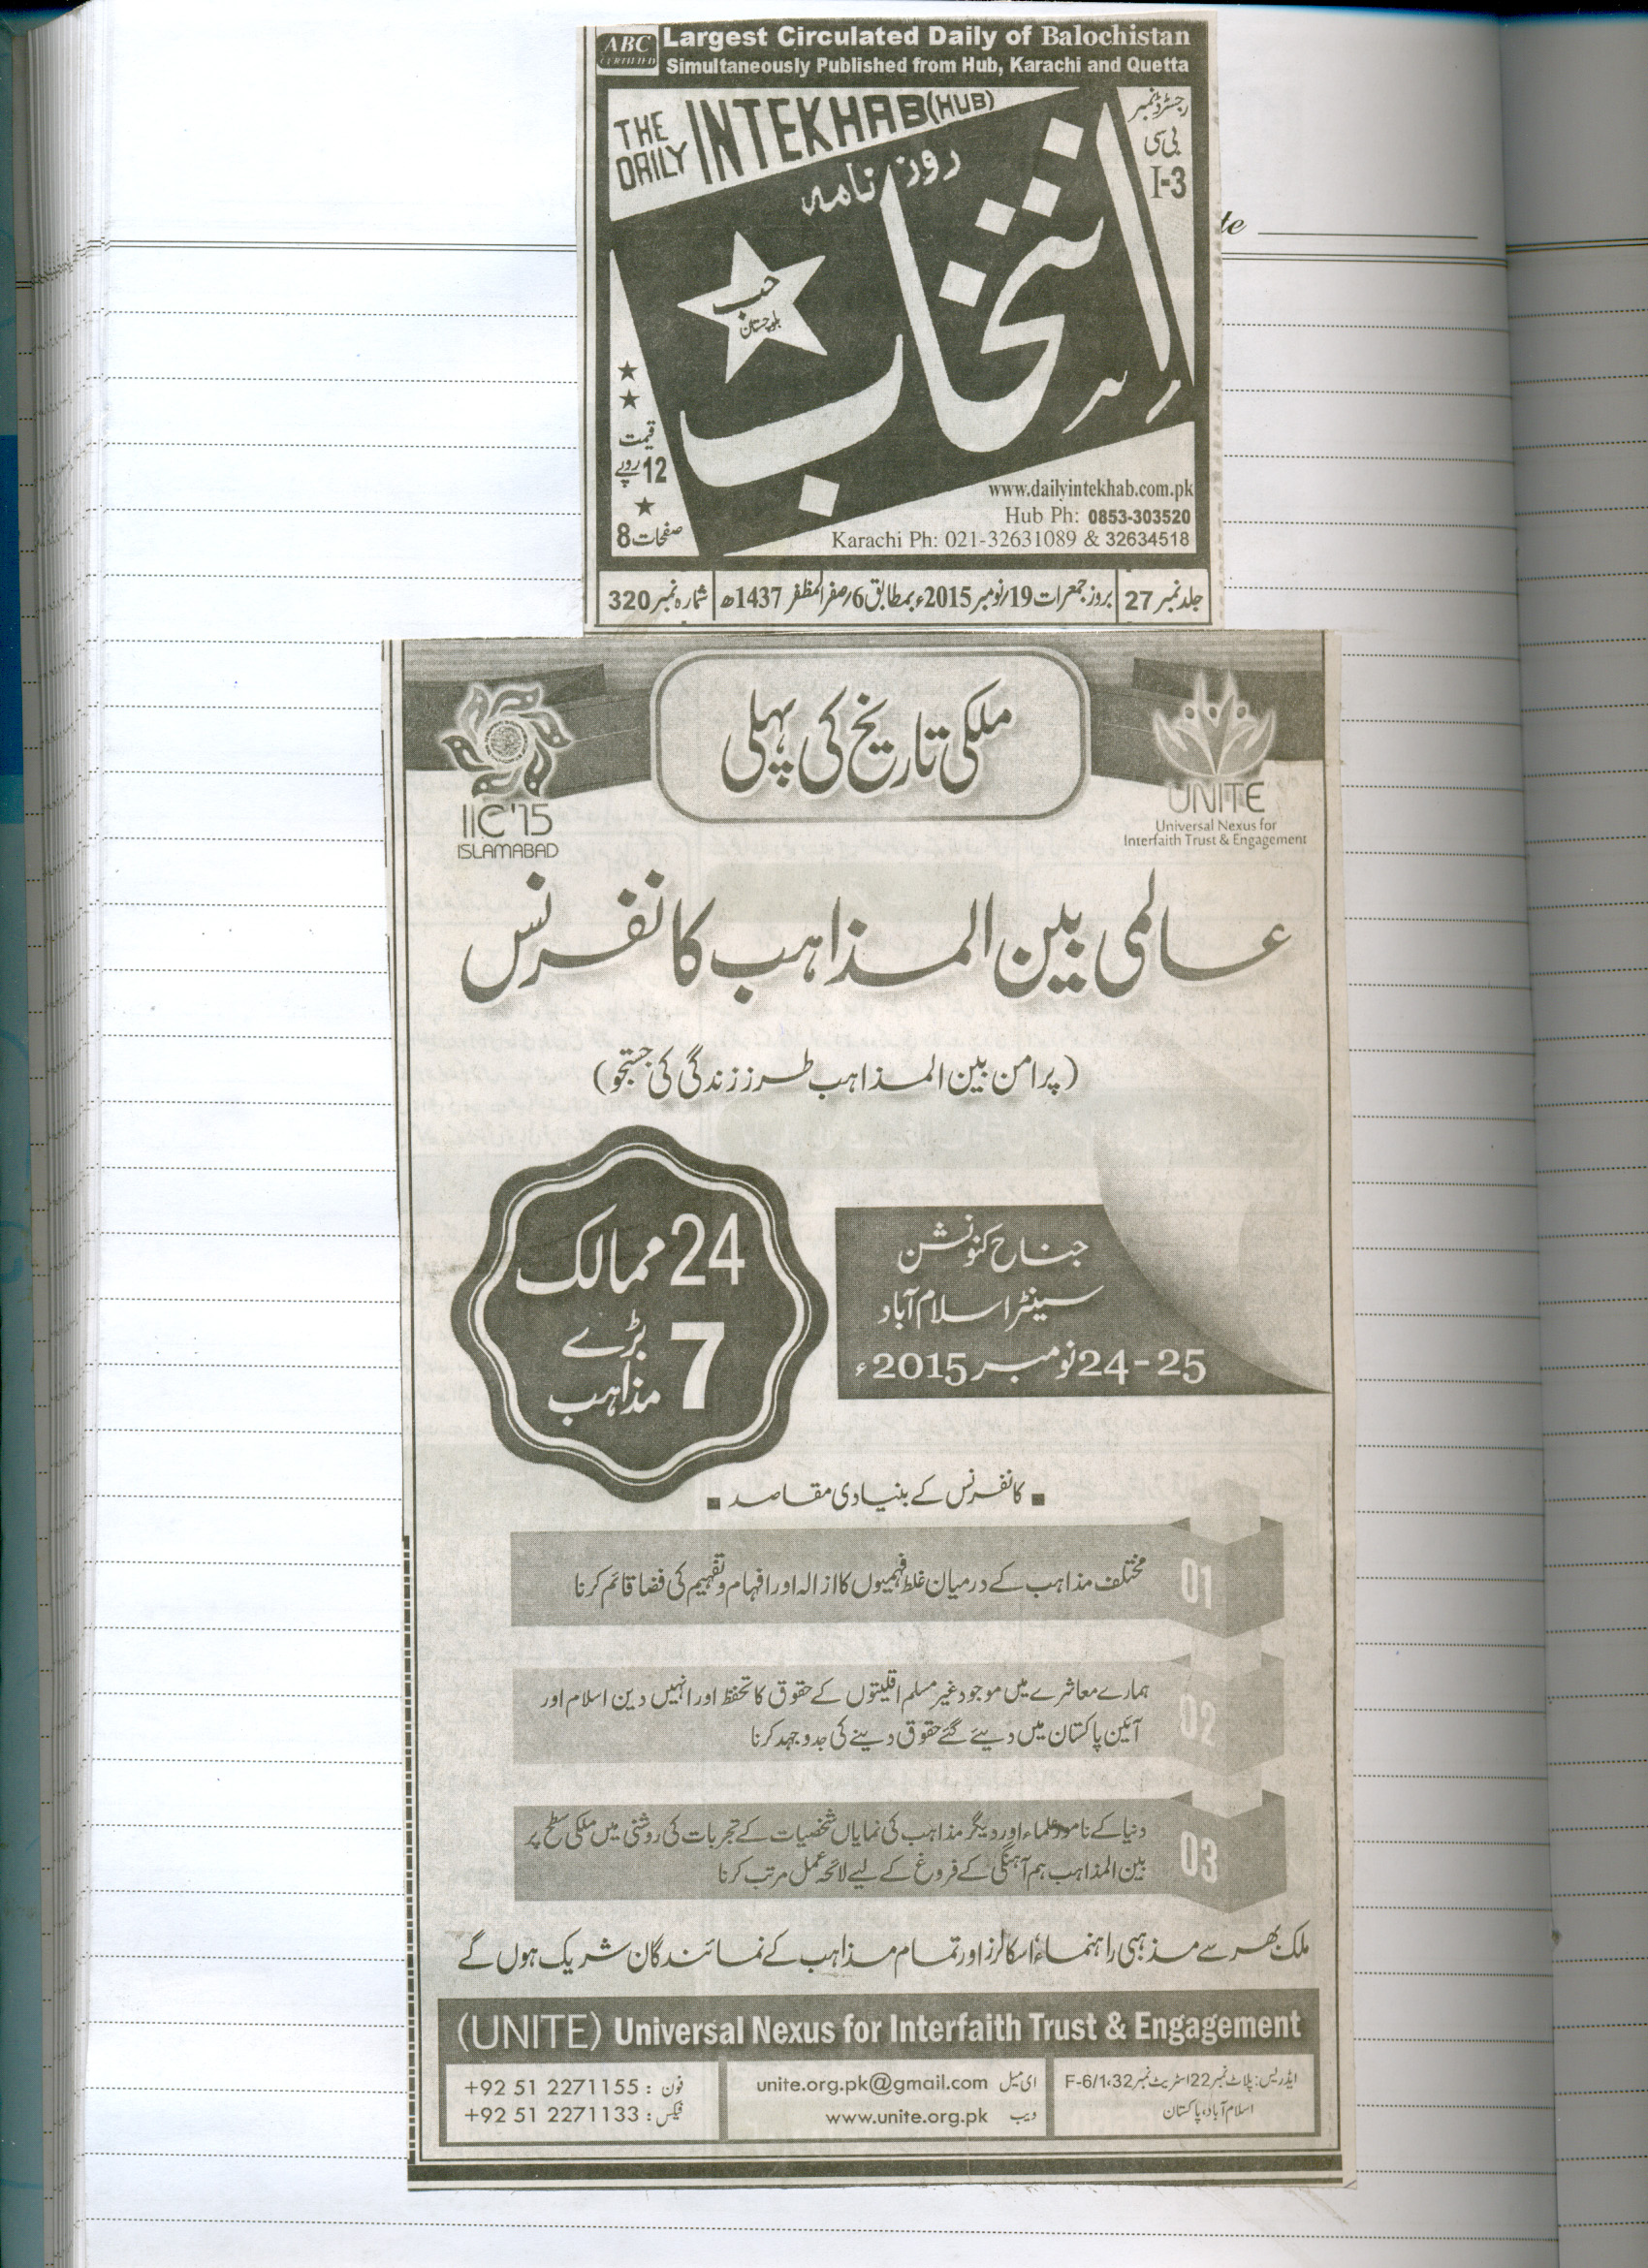 ABC
CERTIFIED
Largest Circulated Daily of Balochistan
Simultaneously Published from Hub, Karachi and Quetta
THE DAILY INTEKHAB (HUB)
رجسٹرڈ نمبر
بی سی
I-3
روزنامہ
انتخاب
حب
بلوچستان
قیمت
12 روپے
صفحات 8
www.dailyintekhab.com.pk
Hub Ph: 0853-303520
Karachi Ph: 021-32631089 & 32634518
جلد نمبر 27 بروز جمعرات 19/نومبر 2015ء بمطابق 6/صفر المظفر 1437ھ شمارہ نمبر 320
ملکی تاریخ کی پہلی
UNITE
Universal Nexus for
Interfaith Trust & Engagement
IIC'15
ISLAMABAD
عالمی بین المذاہب کانفرنس
(پرامن بین المذاہب طرز زندگی کی جستجو)
جناح کنونشن
سینٹر اسلام آباد
24-25 نومبر 2015ء
24 ممالک
7 بڑے
مذاہب
کانفرنس کے بنیادی مقاصد
01
مختلف مذاہب کے درمیان غلط فہمیوں کا ازالہ اور افہام و تفہیم کی فضا قائم کرنا
02
ہمارے معاشرے میں موجود غیر مسلم اقلیتوں کے حقوق کا تحفظ اور انہیں دین اسلام اور
آئین پاکستان میں دیئے گئے حقوق دینے کی جدوجہد کرنا
03
دنیا کے نامور علماء اور دیگر مذاہب کی نمایاں شخصیات کے تجربات کی روشنی میں ملکی سطح پر
بین المذاہب ہم آہنگی کے فروغ کے لیے لائحہ عمل مرتب کرنا
ملک بھر سے مذہبی راہنماء اسکالرز اور تمام مذاہب کے نمائندگان شریک ہوں گے
(UNITE) Universal Nexus for Interfaith Trust & Engagement
ایڈریس: پلاٹ نمبر 22 اسٹریٹ نمبر 32، F-6/1
اسلام آباد، پاکستان
ای میل unite.org.pk@gmail.com
ویب www.unite.org.pk
فون: +92 51 2271155
فیکس: +92 51 2271133